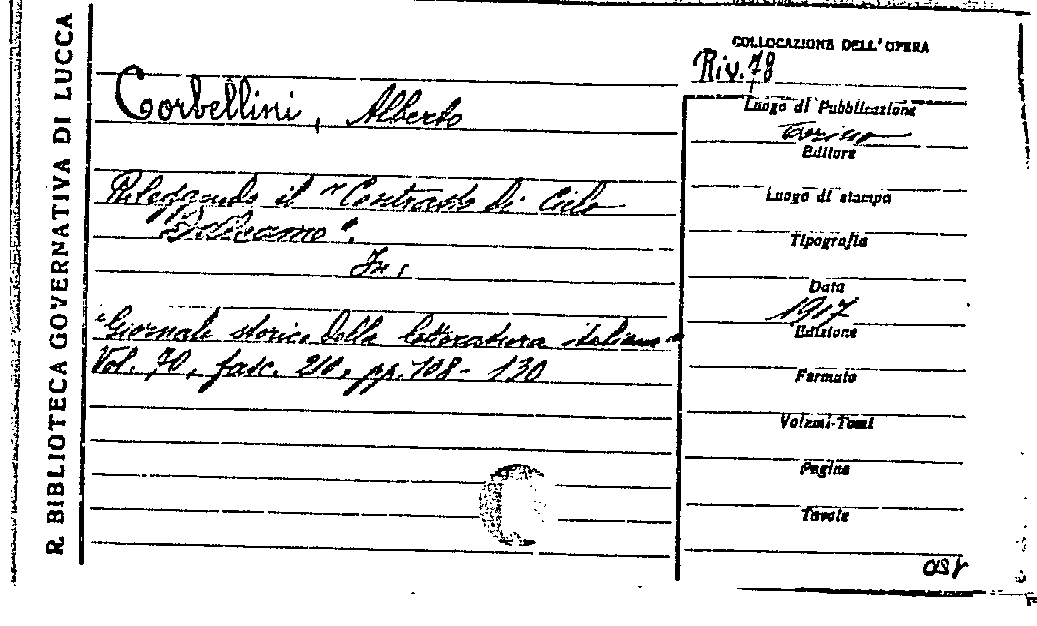 R. BIBLIOTECA GOVERNATIVA DI LUCCA
COLLOCAZIONE DELL'OPERA
Riv. 78
Corbellini, Alberto
Rileggendo il "Contrasto di Cielo
Dalcamo".
In:
"Giornale storico della letteratura italiana"
Vol. 70, fasc. 210, pp. 108 - 130
Luogo di Pubblicazione
Torino
Editore
Luogo di stampa
Tipografia
Data
1917
Edizione
Formato
Volumi-Tomi
Pagine
Tavole